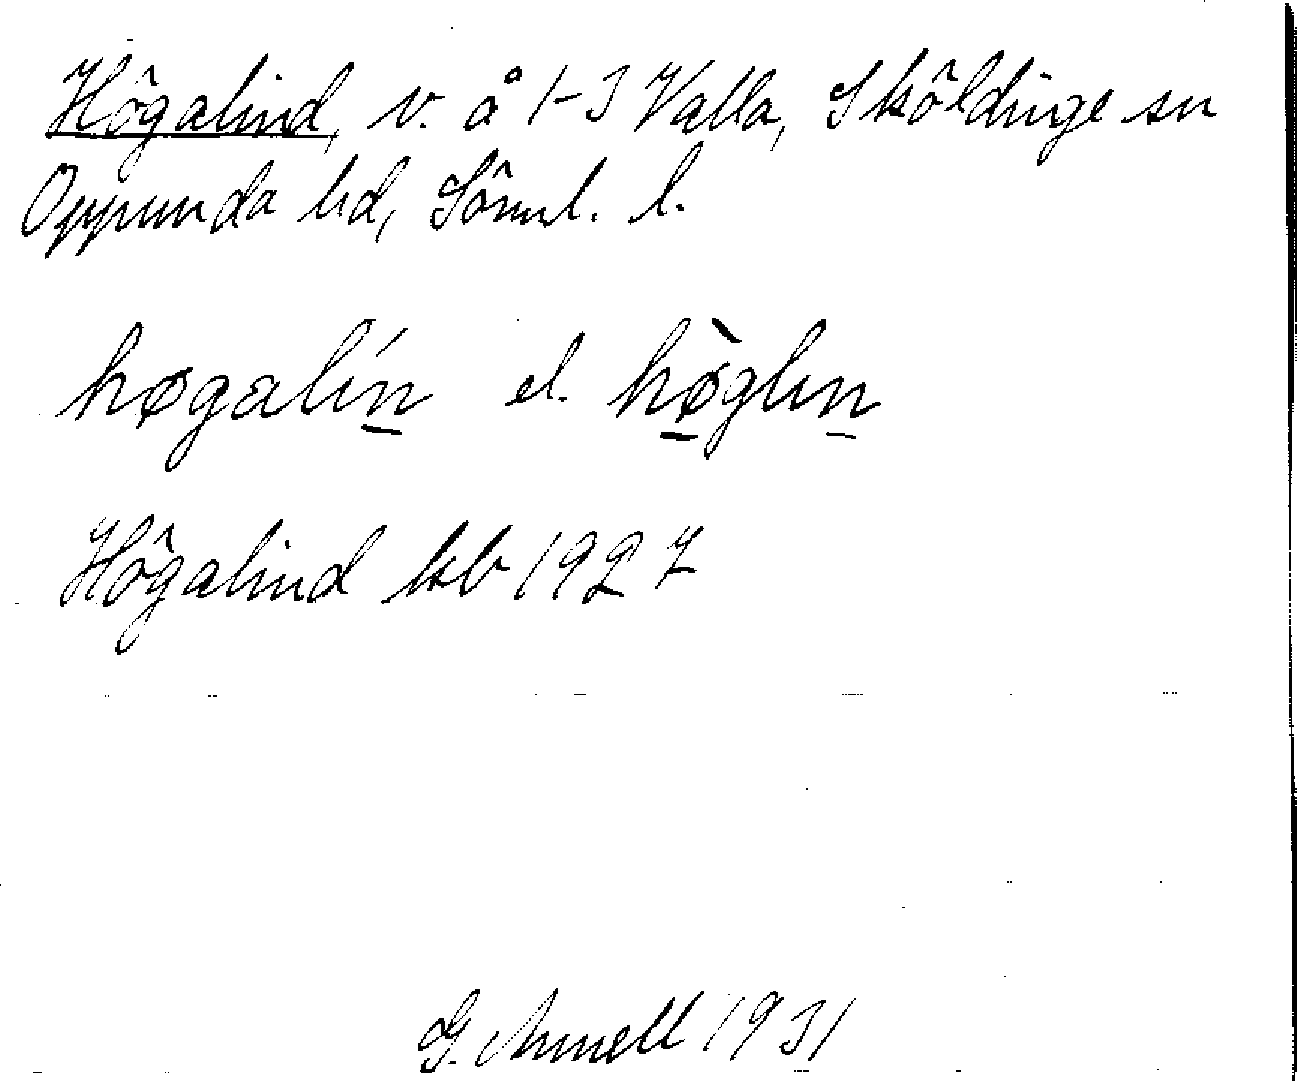 Högalind, v. å 1-3 Valla, Sköldinge sn
Oppunda hd, Söml. l.
høgalín el. hø̀glin
Högalind kb 1927
G. Annell 1931